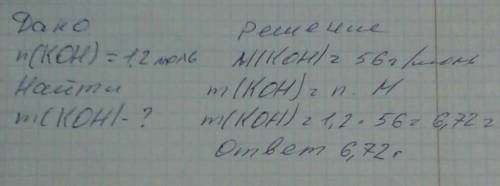 Дано Решение
n(KOH) = 1,2 моль M(KOH) = 56 г/моль
Найти m(KOH) = n · M
m(KOH) - ? m(KOH) = 1,2 · 56 = 6,72 г
Ответ 6,72 г